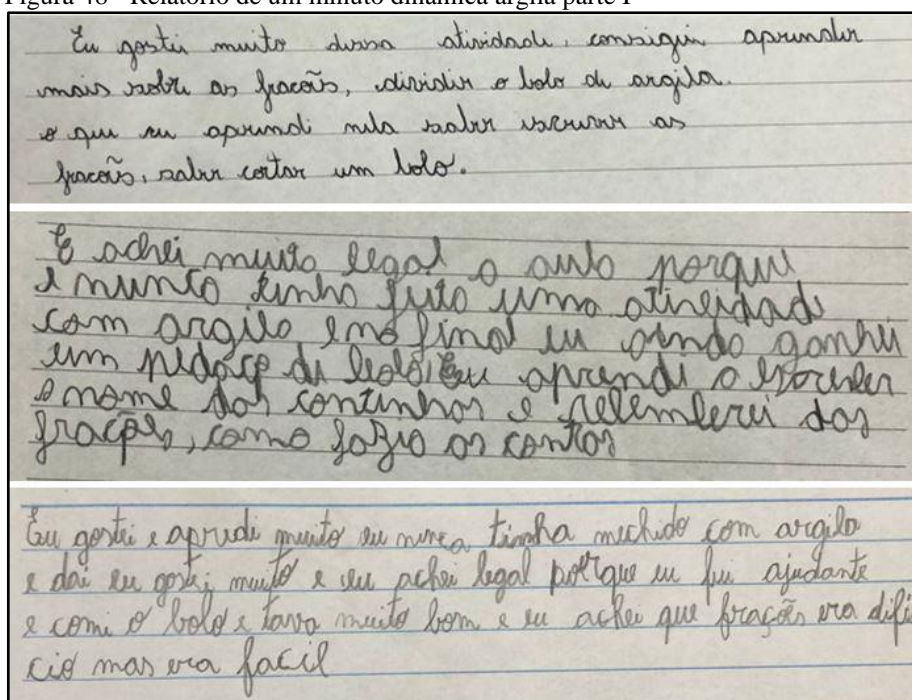 Figura 48 - Relatório de um minuto dinâmica argila parte I
Eu gostei muito dessa atividade, consigui aprender
mais sobre as fracoẽs, dividir o bolo de argila.
o que eu aprendi nela saber escrever as
fracoẽs, saber cortar um bolo.
E achei muito legal a aula porque
e nunca tinha feito uma atineidade
com argila e no final eu ainda ganhei
um pedaço de bolo, eu aprendi a escreler
o nome das continhas e relemberei das
frações, como fazia as contas
Eu gostei e aprudi muito eu nunca tinha mechido com argila
e dai eu gostei muito e eu achei legal porque eu fui ajudante
e comi o bolo e tava muito bom e eu achei que frações era difi
cio mas era facil